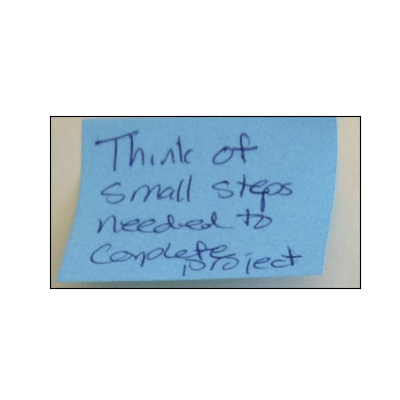 Think of
small steps
needed to
Complete
project